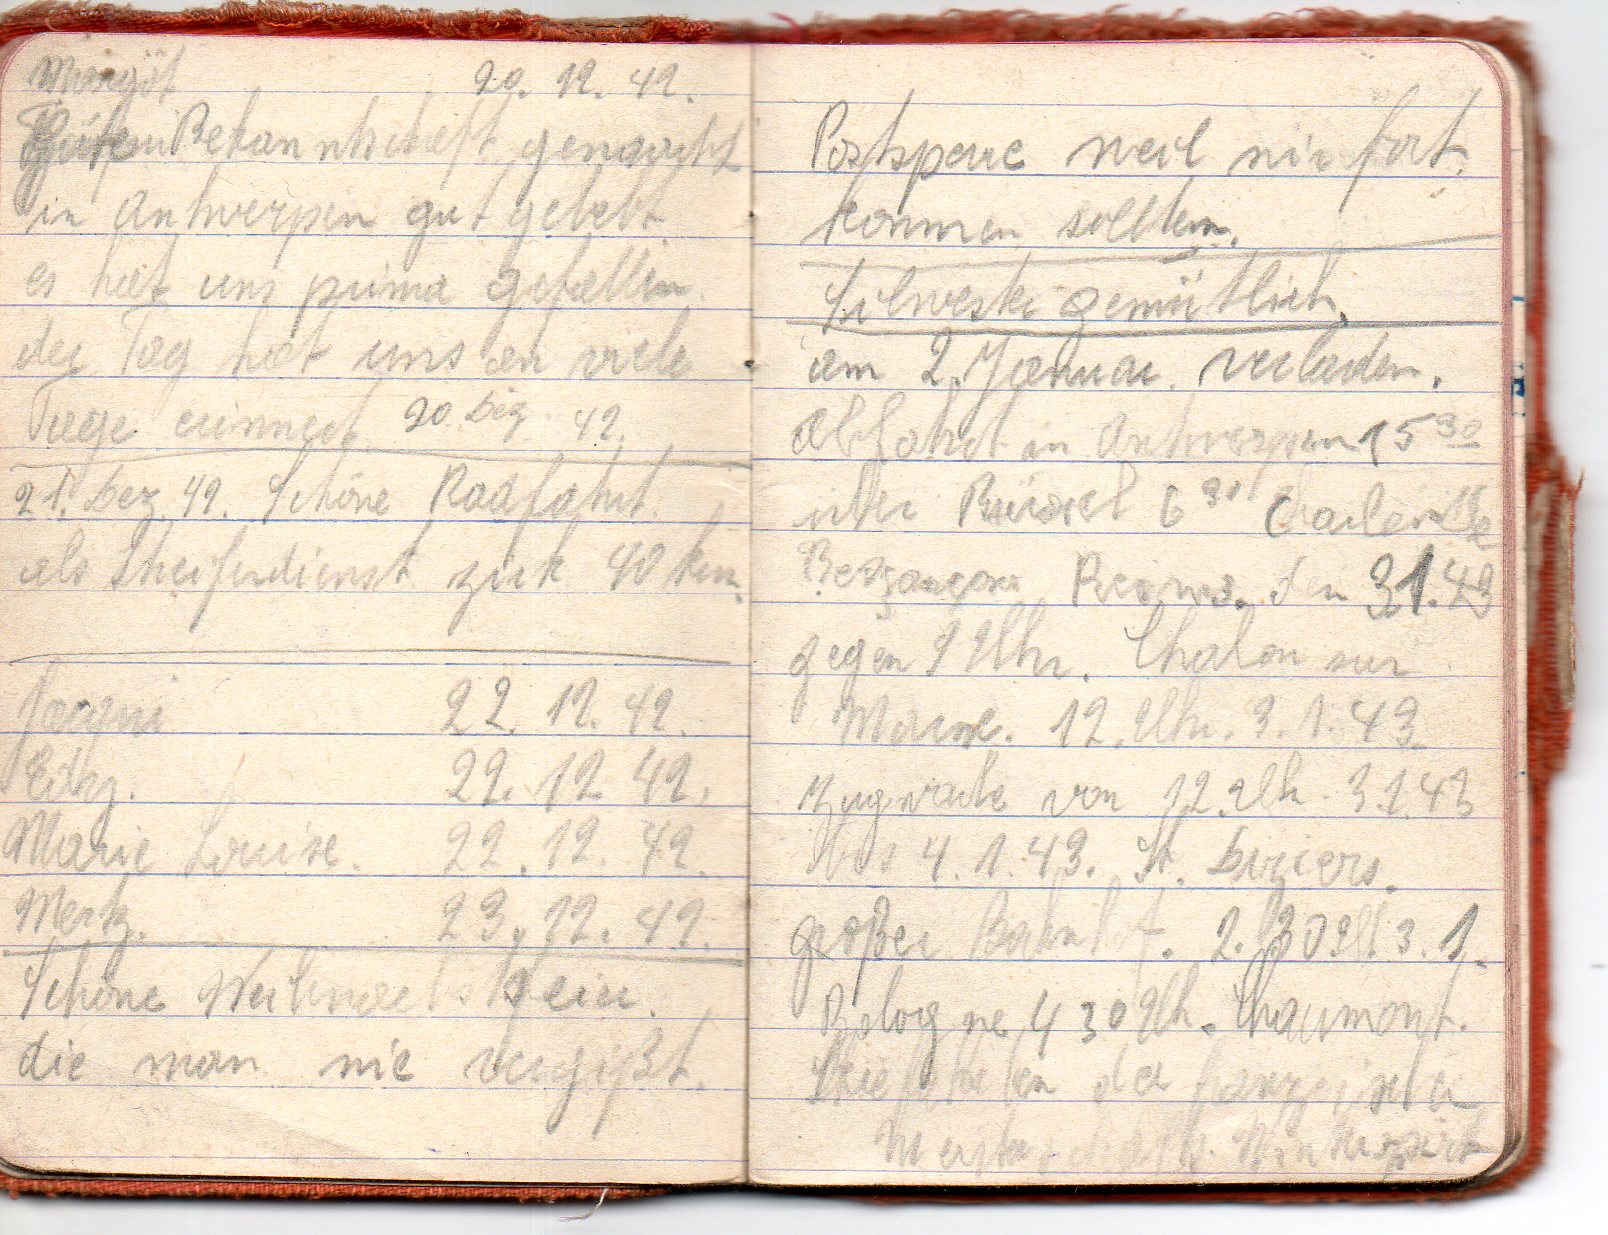 Margot 20. 12. 42.
Guten Bekanntschaft gemacht
in Antwerpen gut gelebt
es hat uns prima gefallen.
der Tag hat uns an viele
Tage erinnert. 20 Dez. 42.
21. Dez. 42. Schöne Radfahrt.
als Streifendienst zirk 40 km.
22. 12. 42.
22. 12. 42.
Marie Louise. 22. 12. 42.
Mertz. 23. 12. 42.
Schöne Weihnachtsfeier.
die man nie vergißt.
Postsperre weil wir fort
kommen sollten.
Silvester gemütlich.
am 2. Januar. verladen.
Abfahrt in Antwerpen 15 30
über Brüssel 6 30
Reims. den 3 1. 43
gegen 9 Uhr. Chalon sur
Marne. 12. Uhr. 3. 1. 43.
von 12. Uhr. 3 1. 43
bis 4. 1. 43. St. Diziers.
großer Bahnhof. 2. 30 Uh 3. 1.
Bologne 4 30 Uh. Chaumont.
der